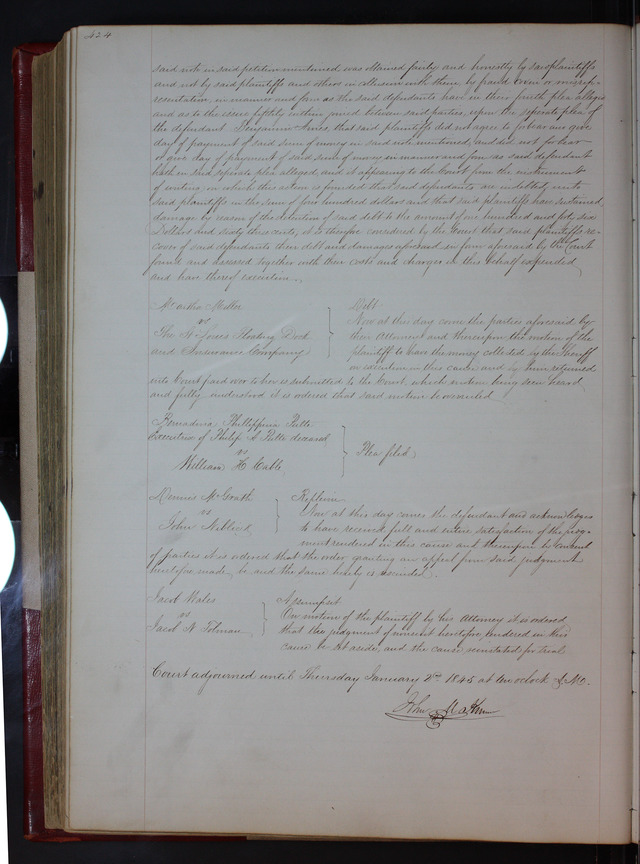 424
said note in said petition mentioned was obtained fairly and honestly by said plaintiffs
and not by said plaintiffs and others in collusion with them by fraud covin or misrep-
resentation in manner and form as the said defendants have in their fourth plea alleged
and as to the issue fifthly within joined between said parties, upon the separate plea of
the defendant Benjamin Ames, that said plaintiffs did not agree to forbear and give
day of payment of said sum of money in said note mentioned, and did not forbear
or give day of payment of said sum of money in manner and form as said defendant
hath in said separate plea alleged, and it appearing to the Court from the instrument
of writing on which this action is founded that said defendants are indebted unto
said plaintiffs in the sum of five hundred dollars and that said plaintiffs have sustained
damage by reason of the detention of said debt to the amount of one hundred and fifty six
Dollars and sixty three cents, it is therefore considered by the Court that said plaintiffs re-
cover of said defendants their debt and damages aforesaid in form aforesaid by the Court
found and assessed together with their costs and charges in this behalf expended
and have thereof execution.
Martha Miller
vs
The St Louis Floating Dock
and Insurance Company
Debt
Now at this day come the parties aforesaid by
their Attornies and thereupon the motion of the
plaintiff to have the money collected by the Sheriff
on execution in this cause and by him returned
into Court paid over to her is submitted to the Court, which motion being seen heard
and fully understood it is ordered that said motion be overruled
Bernadina Phillippina Rutte
Executrix of Philip A Rutte deceased
vs
William H Cable
Plea filed
Dennis McGrath
vs
John
Replevin
Now at this day comes the defendant and acknowledges
to have received full and entire satisfaction of the judg-
ment rendered in this cause and thereupon by consent
of parties it is ordered that the order granting an appeal from said judgment
heretofore made, be and the same hereby is rescinded.
Jacob Wales
vs
Jacob N Tolman
Assumpsit
On motion of the plaintiff by his Attorney it is ordered
that the judgment of nonsuit heretofore rendered in this
cause be set aside, and the cause reinstated for trial
Court adjourned until Thursday January 2nd 1845 at ten oclock A.M.
John M